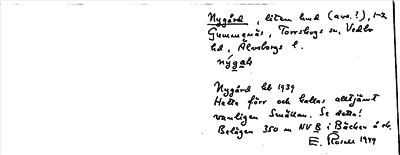 Nygård, liten lund (avs.?), 1-2
Gummenäs, Torrskogs sn, Vedbo
hd, Älvsborgs l.
nýgaḷ
Nygård lt 1939
Hette förr och kallas alltjämt
vanligen Smällan. Se detta!
Belägen 350 m NV B i Bäcken å ek.
E. Rosell 1949